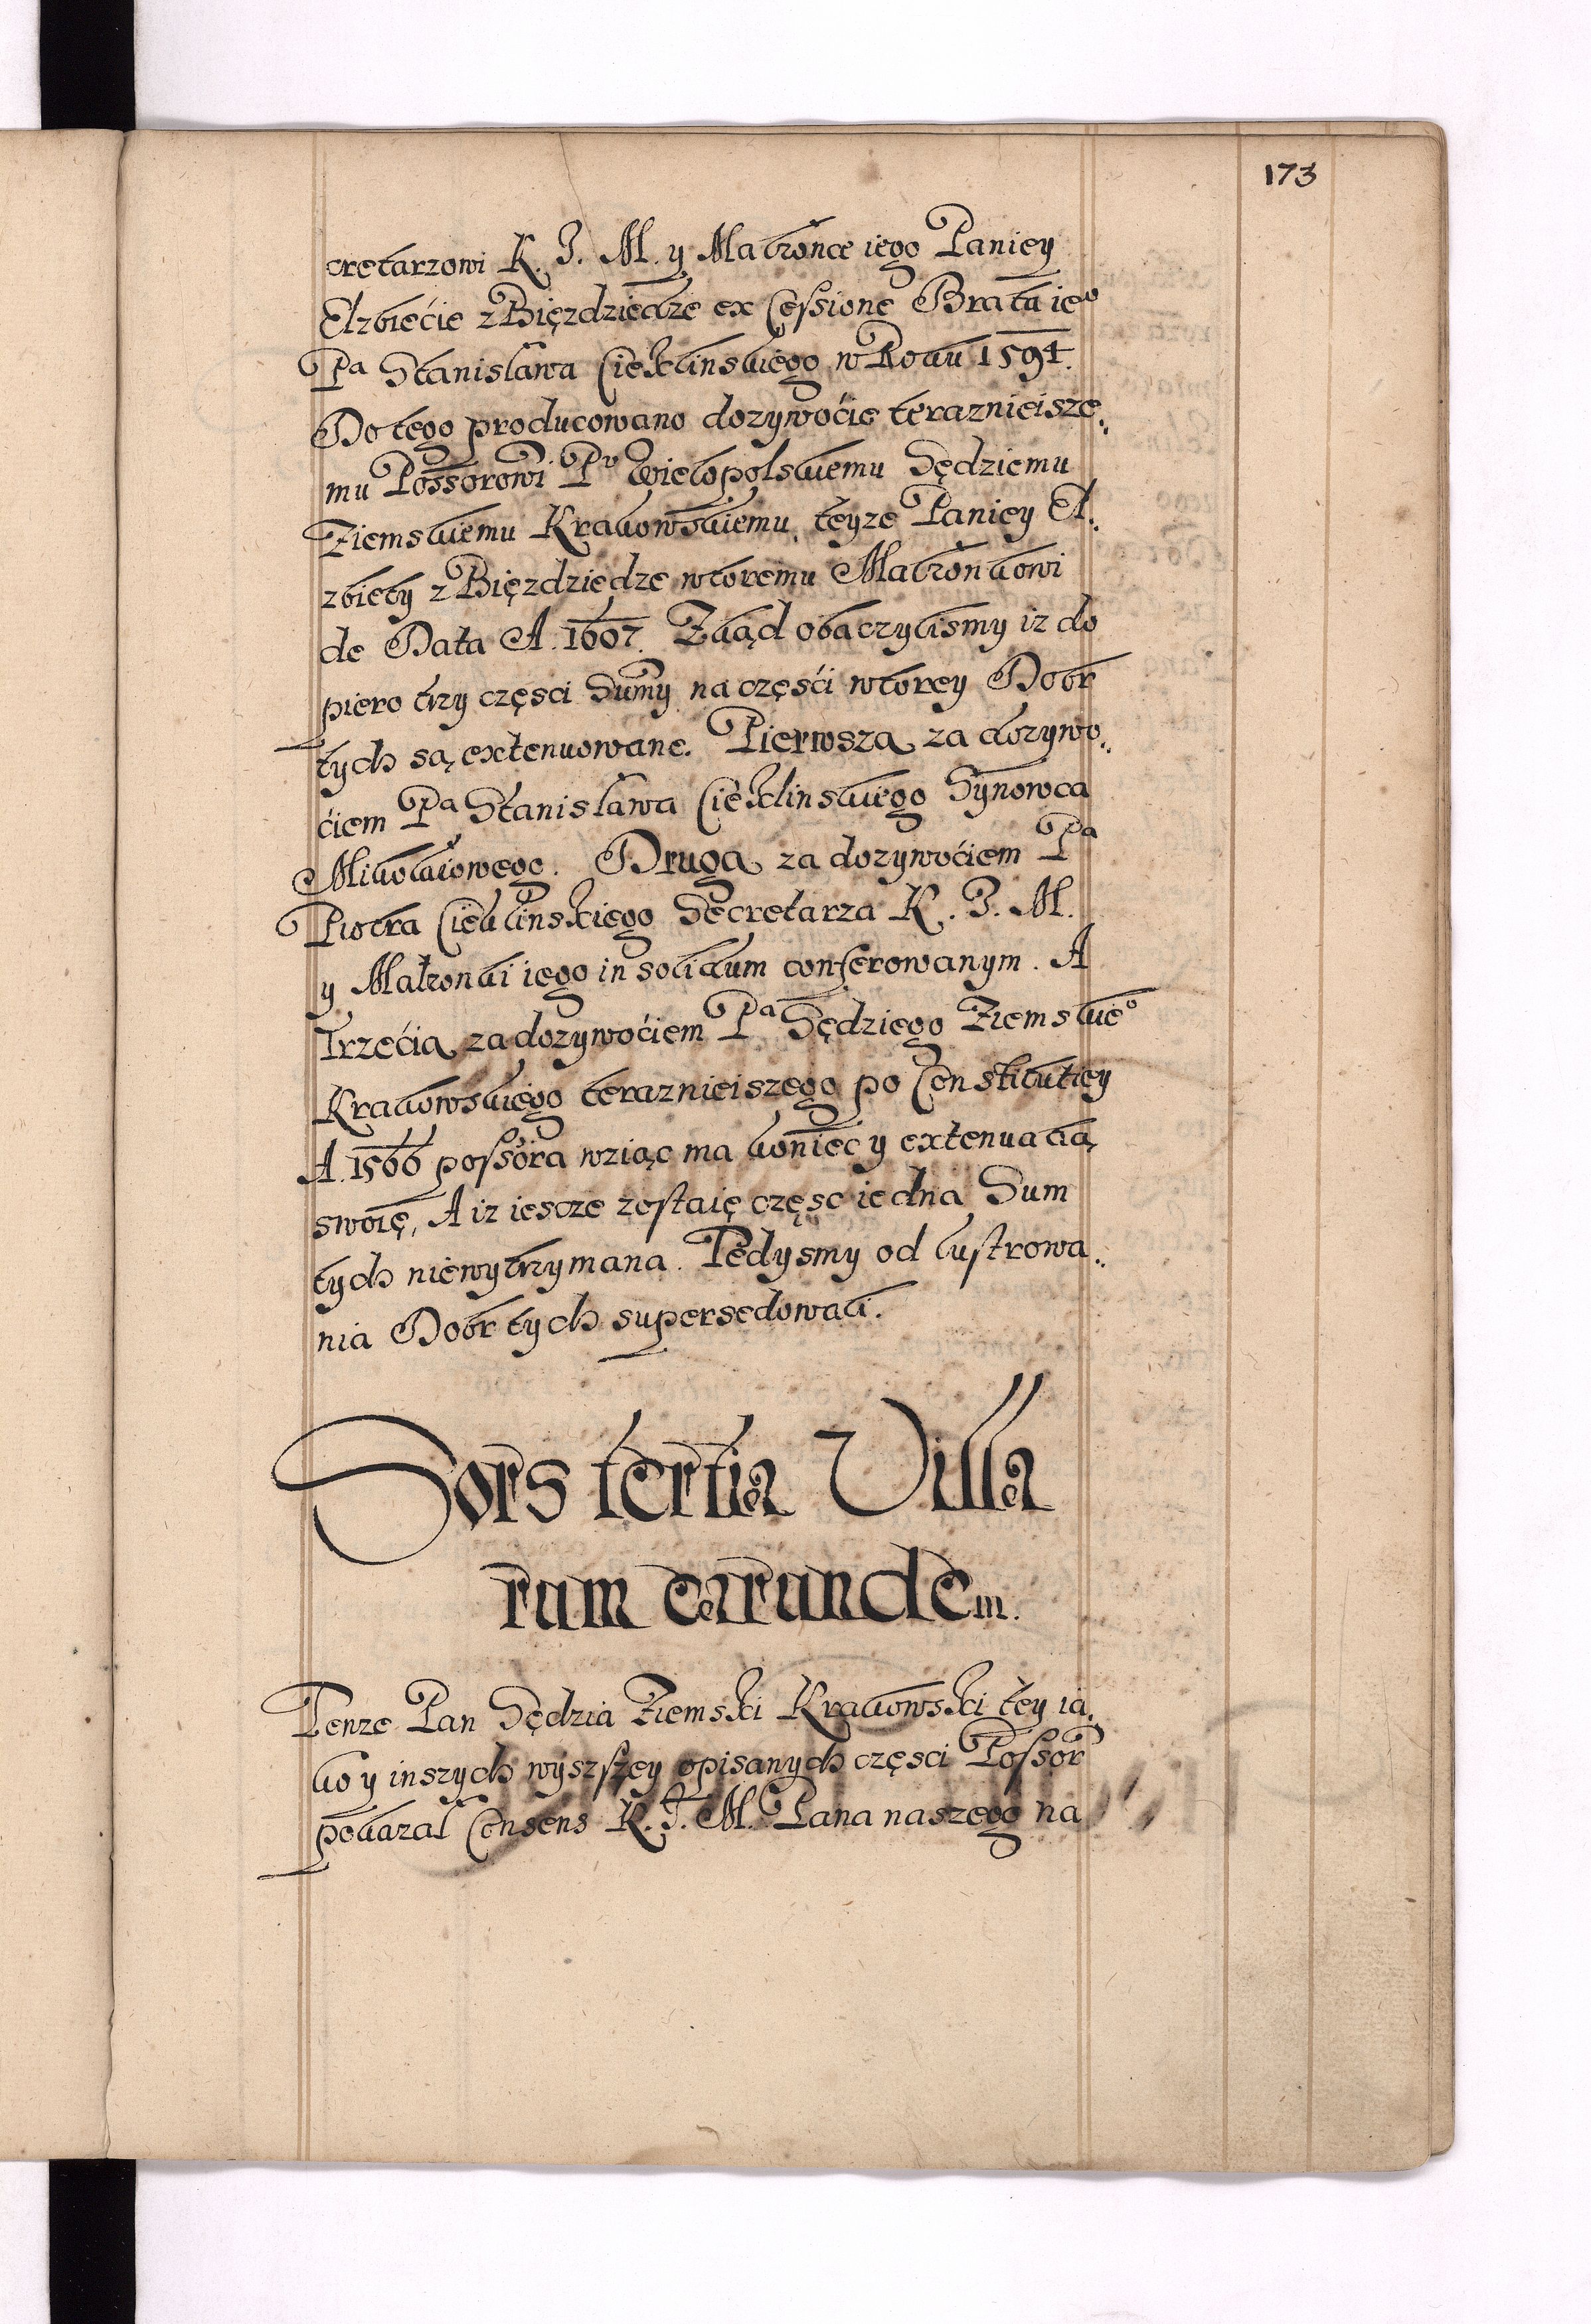 173
cretarzowi K. J. M. y Małzonce iego Paniey
Elzbiećie z Bięzdziedze ex Cessione Brata ieº
Pª Stanisława Ciekłinskiego w Roku 1594.
Do tego producowano dozywoćie teraznieisze„
mu Possorowi Pº Wielopolskiemu Sędziemu
Ziemskiemu Krakowskiemu, teyze Paniey El„
zbiety z Bięzdziedze wtoremu Małzonkowi
de Data A. 1607. Zkąd obaczylismy iz do
piero trzy częsci Sumy na częśći wtorey Dobr
tych są extenuowane. Pierwsza za dozywo„
ćiem Pª Stanisława Cieklinskiego Synowca
Mikołaiowego. Druga za dozywoćiem Pª
Piotra Cieklinskiego Secretarza K. J. M.
y Małzonki iego in solidum conferowanym. A
Trzećia za dozywoćiem Pª Sędziego Ziemskieº
Krakowskiego teraznieiszego po Constitutiey
A. 1566 possora wziąc ma koniec y extenuatią
swoię, A iz iescze zostaię częsc iedna Sum
tych niewytrzymana. Tedysmy od lustrowa„
nia Dobr tych supersedowali.
Sors tertia Villa
rum earundem.
Tenze Pan Sędzia Ziemski Krakowski tey ia„
ko y inszych wyszszey opisanych częsci Possor
pokazał Consens K. J. M. Pana naszego na